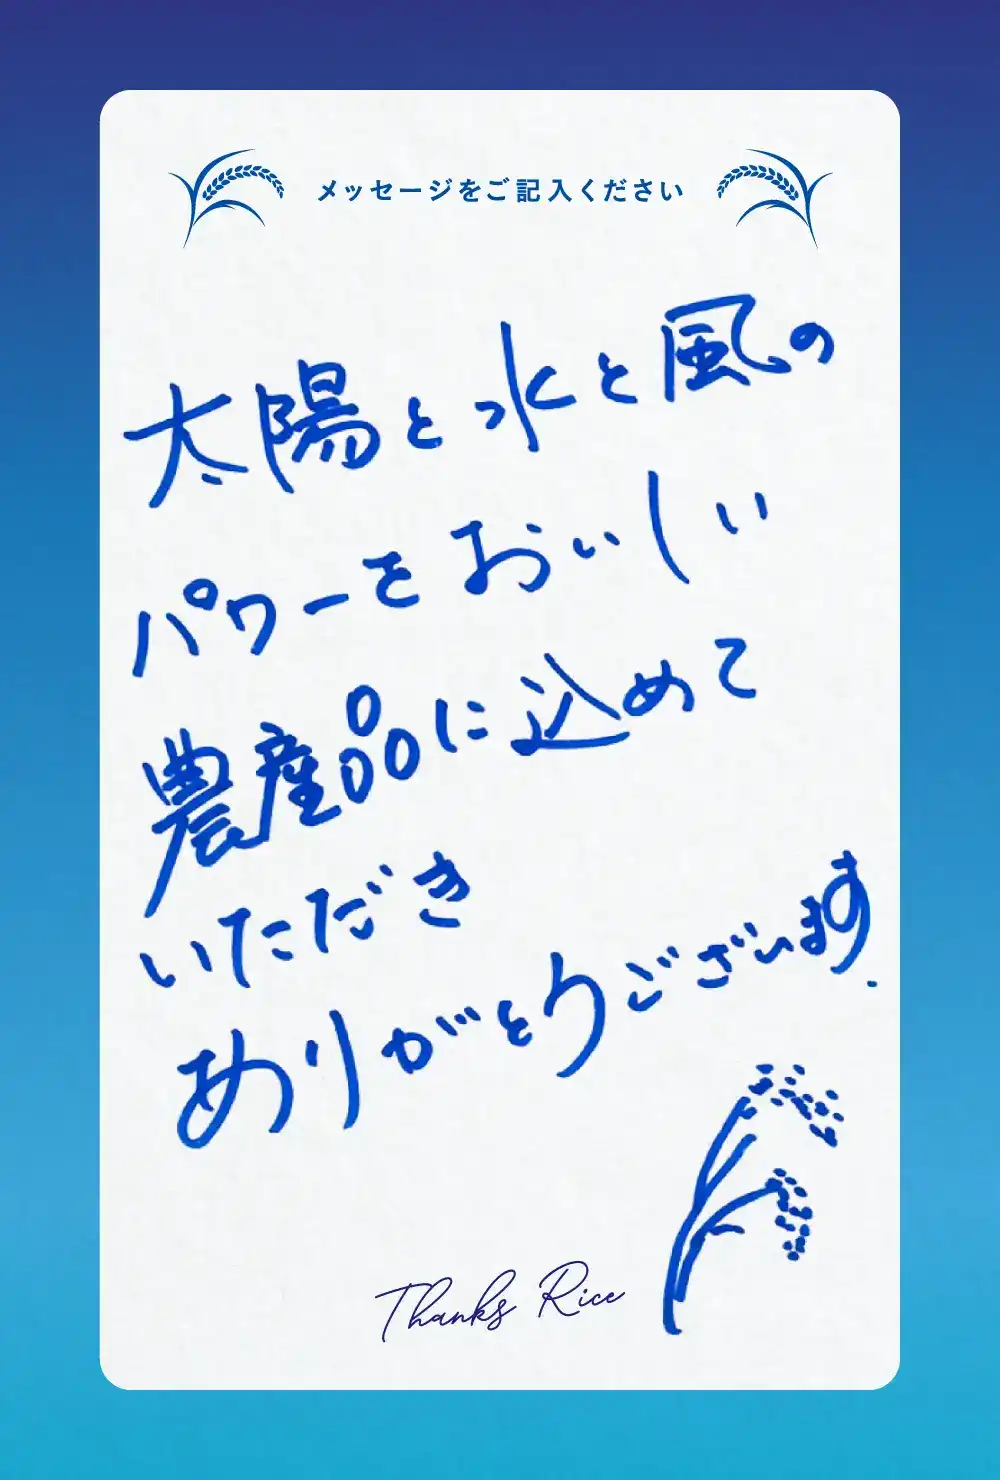 メッセージをご記入ください
太陽と水と風の
パワーをおいしい
農産品に込めて
いただき
ありがとうございます.
Thanks Rice